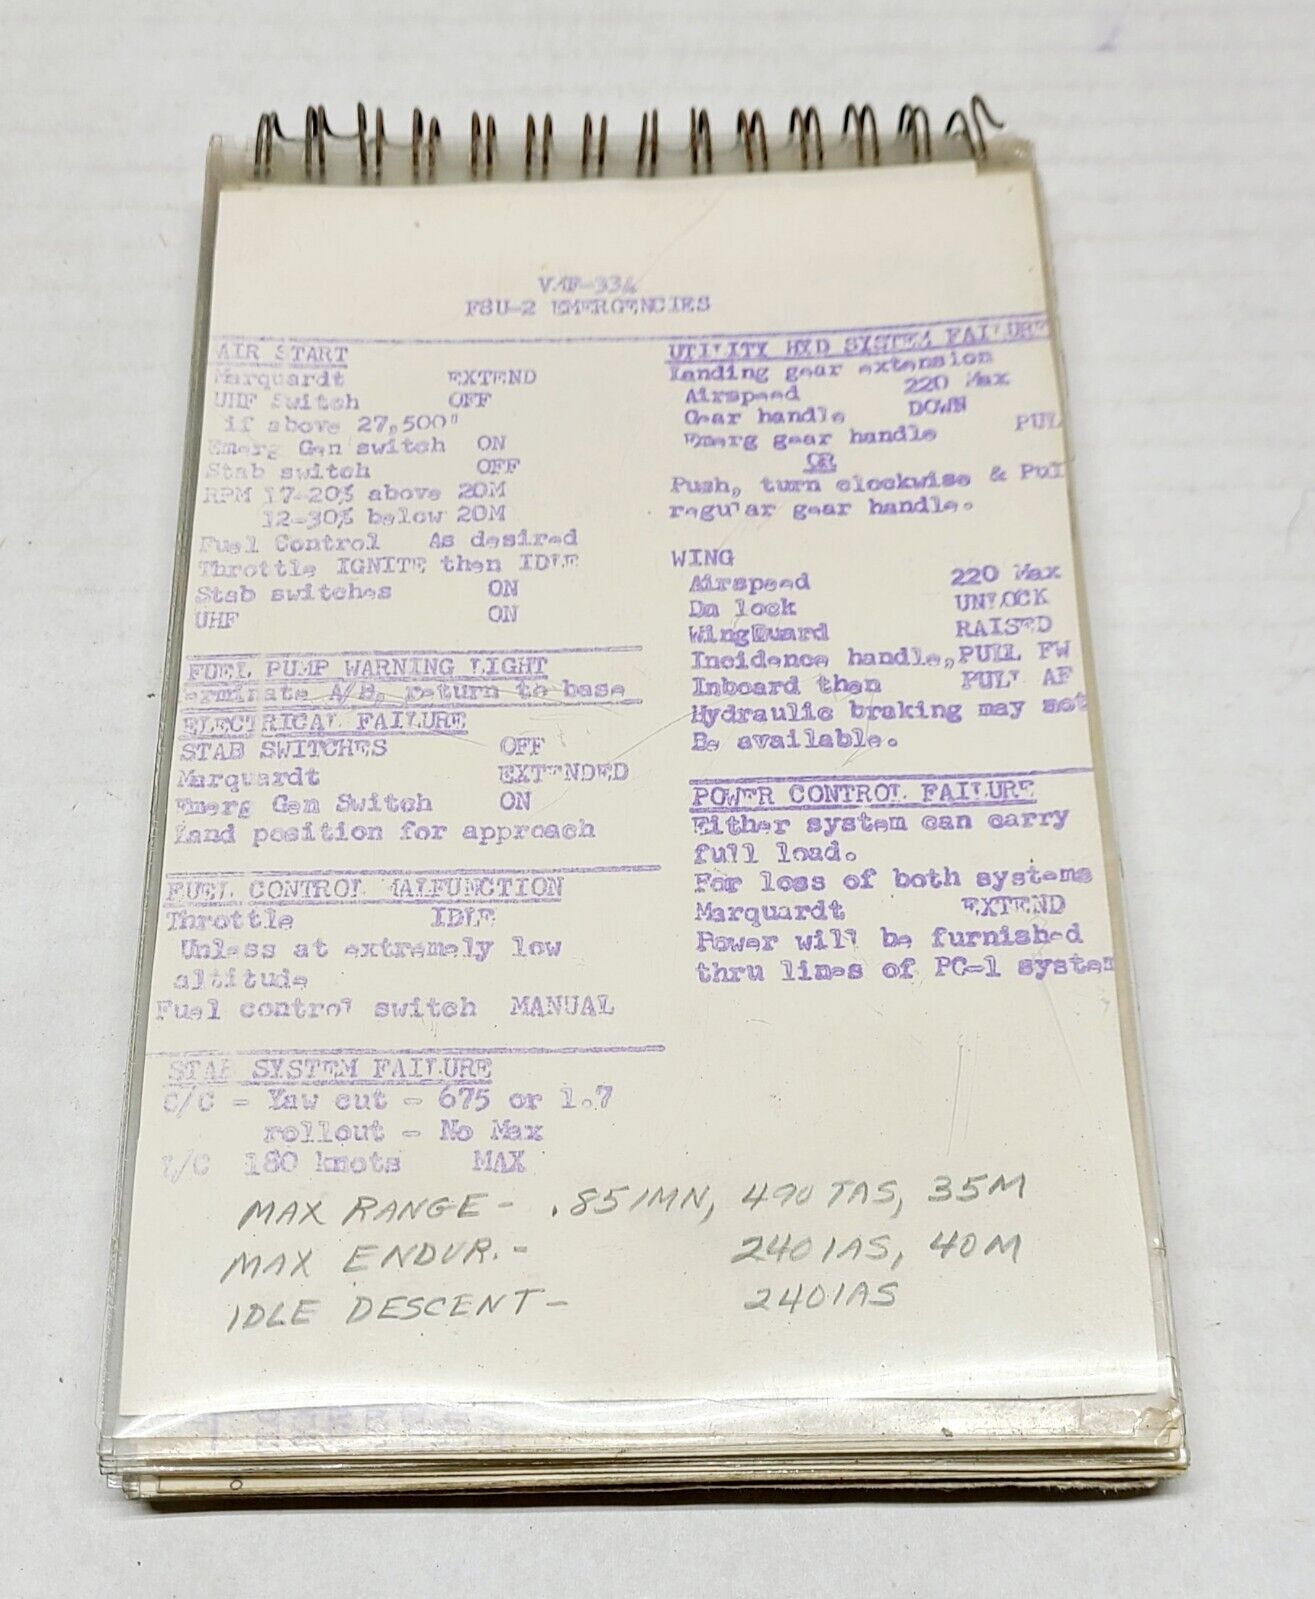 VMF-334
F8U-2 EMERGENCIES
AIR START
Marquardt EXTEND
UHF Switch OFF
if above 27,500"
Emerg Gen switch ON
Stab switch OFF
RPM 17-20% above 20M
12-30% below 20M
Fuel Control As desired
Throttle IGNITE then IDLE
Stab switches ON
UHF ON
FUEL PUMP WARNING LIGHT
erminate A/B, return to base
ELECTRICAL FAILURE
STAB SWITCHES OFF
Marquardt EXTENDED
Emerg Gen Switch ON
Land position for approach
FUEL CONTROL MALFUNCTION
Throttle IDLE
Unless at extremely low
altitude
Fuel control switch MANUAL
STAB SYSTEM FAILURE
C/C - Yaw cut - 675 or 1.7
rollout - No Max
180 knots MAX
UTILITY HYD SYSTEM FAILURE
Landing gear extension
Airspeed 220 Max
Gear handle DOWN
Emerg gear handle PUL
OR
Push, turn clockwise & Pul
regular gear handle.
WING
Airspeed 220 Max
Dn lock UNLOCK
Wing Guard RAISED
Incidence handle, PULL FW
Inboard then PULL AF
Hydraulic braking may not
Be available.
POWER CONTROL FAILURE
Either system can carry
full load.
For loss of both systems
Marquardt EXTEND
Power will be furnished
thru lines of PC-1 system
MAX RANGE - .85 IMN, 490 TAS, 35M
MAX ENDUR. - 240 IAS, 40M
IDLE DESCENT - 240 IAS